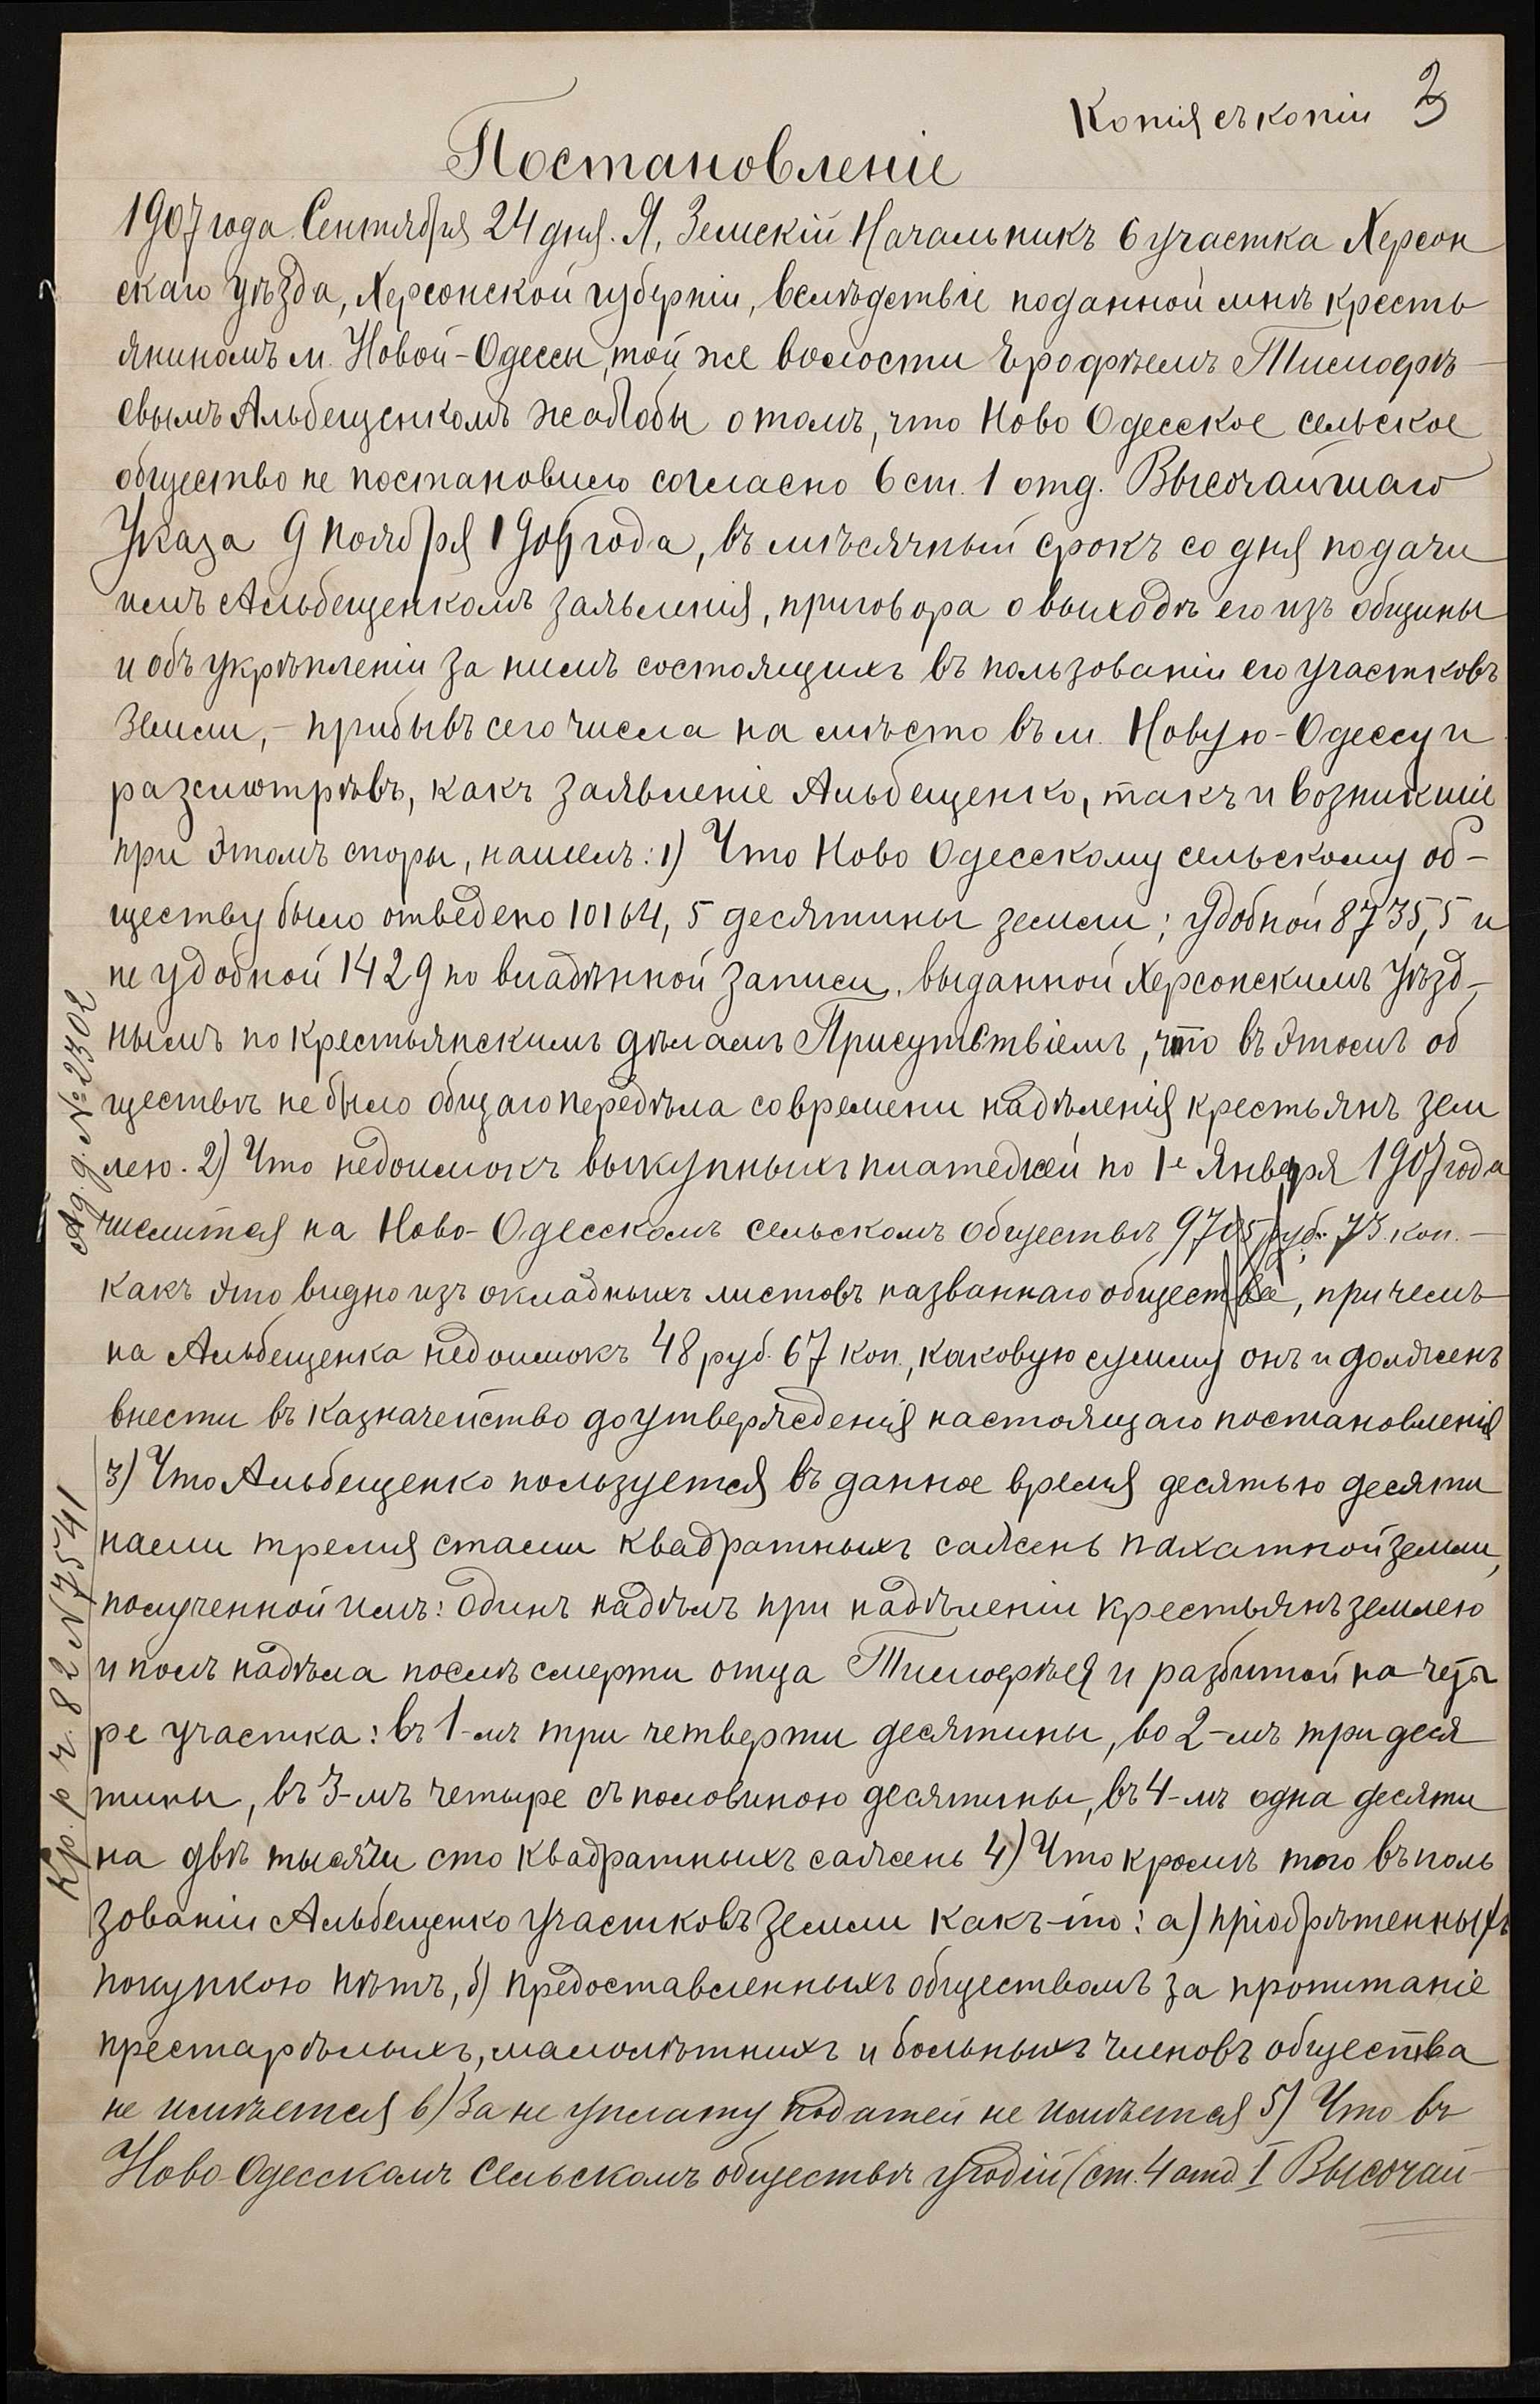 Копія съ копіи 3
Постановленіе
1907 года Сентября 24 дня. Я, Земскій Начальникъ 6 участка Херсон
скаго уѣзда, Херсонской губерніи, вслѣдствіе поданной мнѣ кресть
яниномъ м. Новой-Одессы, той же волости Ерофѣемъ Тимофѣ-
евымъ Альбещенкомъ жалобы о томъ, что Ново Одесское сельское
общество не постановило согласно 6 ст. 1 отд. Высочайшаго
Указа 9 Ноября 1906 года, въ мѣсячный срокъ со дня подачи
имъ Альбещенкомъ заявленія, приговора о выходѣ его изъ общины
и объ укрѣпленіи за нимъ состоящихъ въ пользованіи его участковъ
земли, - прибывъ сего числа на мѣсто въ м. Новую-Одессу и
разсмотрѣвъ, какъ заявленіе Альбещенко, такъ и возникшіе
при этомъ споры, нашелъ: 1) Что Ново Одесскому сельскому об-
ществу было отведено 10164,5 десятины земли; удобной 8735,5 и
не удобной 1429 по владѣнной записи, выданной Херсонскимъ Уѣзд-
нымъ по крестьянскимъ дѣламъ Присутствіемъ, что въ этомъ об
ществѣ не было общаго передѣла со времени надѣленія крестьянъ зем
лею. 2) Что недоимокъ выкупныхъ платежей по 1е Января 1907 года
числится на Ново-Одесскомъ сельскомъ обществѣ руб. 73 коп. -
какъ это видно изъ окладныхъ листовъ названнаго общества, причемъ
на Альбещенка недоимокъ 48 руб. 67 коп., каковую сумму онъ и долженъ
внести въ казначейство до утвержденія настоящаго постановленія
3) Что Альбещенко пользуется въ данное время десятью десяти
нами тремя стами квадратныхъ сажень пахатной земли,
полученной имъ: одинъ надѣлъ при надѣленіи крестьянъ землею
и полъ надѣла послѣ смерти отца Тимофѣя и разбитой на четы
ре участка: въ 1-мъ три четверти десятины, во 2-мъ три деся
тины, въ 3-мъ четыре съ половиною десятины, въ 4-мъ одна десяти
на двѣ тысячи сто квадратныхъ сажень 4) Что кромѣ того въ поль
зованіи Альбещенко участковъ земли какъ-то: а) пріобрѣтенныхъ
покупкою нѣтъ, б) предоставленныхъ обществомъ за пропитаніе
престарѣлыхъ, малолѣтнихъ и больныхъ членовъ общества
не имѣется в) За не уплату податей не имѣется 5) Что въ
Ново-Одесскомъ сельскомъ обществѣ угодій (ст. 4 отд. I Высочай-
Ад. д. № 2302
Кр. р. ч. 82 N 7541